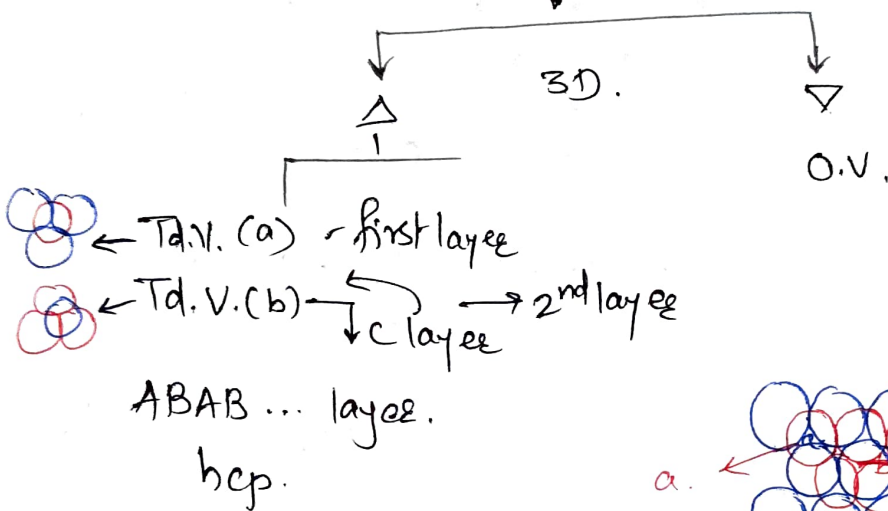 3D.
O.V.
Td.V. (a) - first layer
Td.V. (b) → 2nd layer
C layer
ABAB ... layer.
hcp.
a.